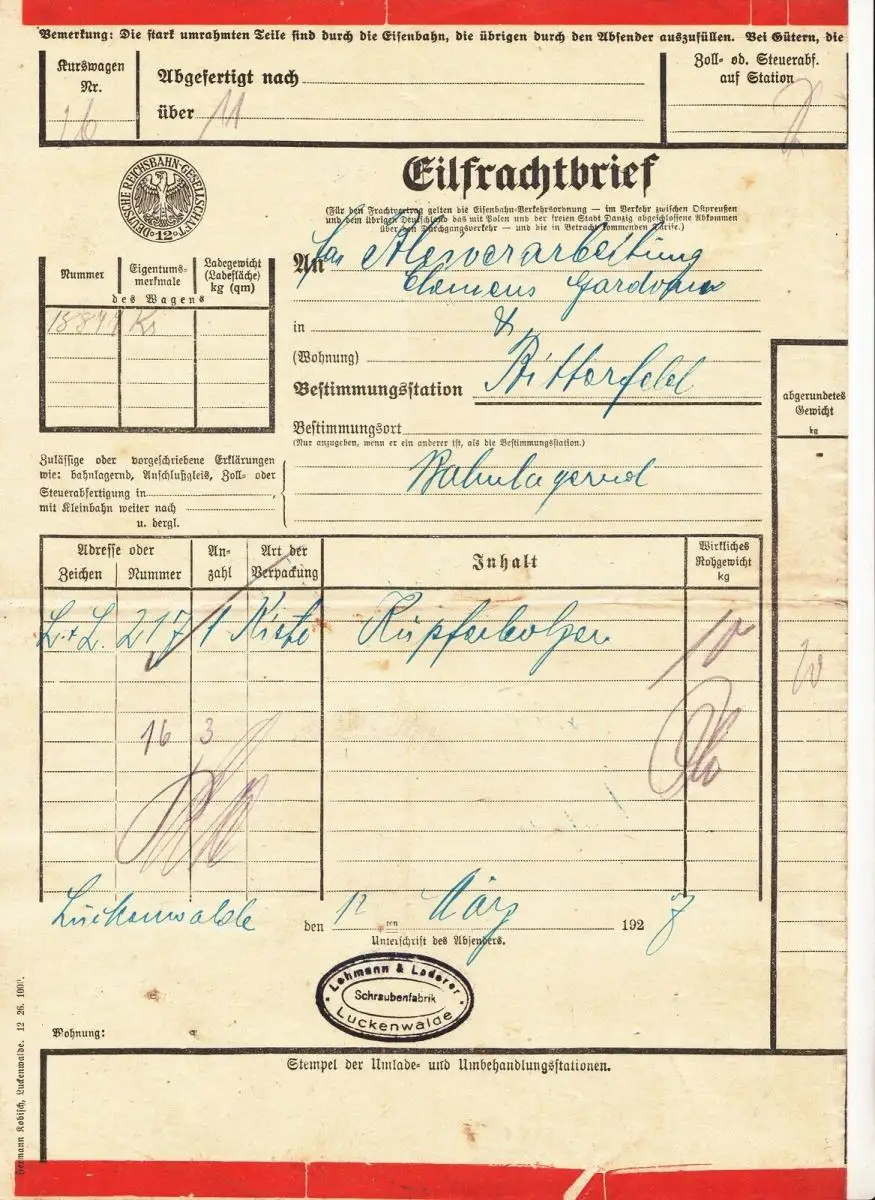 Bemerkung: Die stark umrahmten Teile sind durch die Eisenbahn, die übrigen durch den Absender auszufüllen. Bei Gütern, die
Kurswagen
Nr.
16
Abgefertigt nach
über 11
Zoll- od. Steuerabf.
auf Station
DEUTSCHE REICHSBAHN-GESELLSCHAFT
12
Eilfrachtbrief
(Für den Frachtvertrag gelten die Eisenbahn-Verkehrsordnung — im Verkehr zwischen Ostpreußen
und dem übrigen Deutschland das mit Polen und der freien Stadt Danzig abgeschlossene Abkommen
über den Durchgangsverkehr — und die in Betracht kommenden Tarife.)
An
Clemens
in
(Wohnung)
Bestimmungsstation Bitterfeld
Bestimmungsort
(Nur anzugeben, wenn er ein anderer ist, als die Bestimmungsstation.)
Bahnlagernd
Nummer
Eigentums-
merkmale
Ladegewicht
(Ladefläche)
kg (qm)
des Wagens
Zulässige oder vorgeschriebene Erklärungen
wie: bahnlagernd, Anschlußgleis, Zoll- oder
Steuerabfertigung in ,
mit Kleinbahn weiter nach
u. dergl.
abgerundetes
Gewicht
kg
Adresse oder
Zeichen Nummer
An-
zahl
Art der
Verpackung
Inhalt
Wirkliches
Rohgewicht
kg
L. + L. 217 1 Kiste Kupferbolzen 10
16 3
Luckenwalde den 12 ten März 1927
Unterschrift des Absenders.
Lehmann & Laderer
Schraubenfabrik
Luckenwalde
Wohnung:
Stempel der Umlade- und Umbehandlungsstationen.
Hermann Kobisch, Luckenwalde. 12 26.